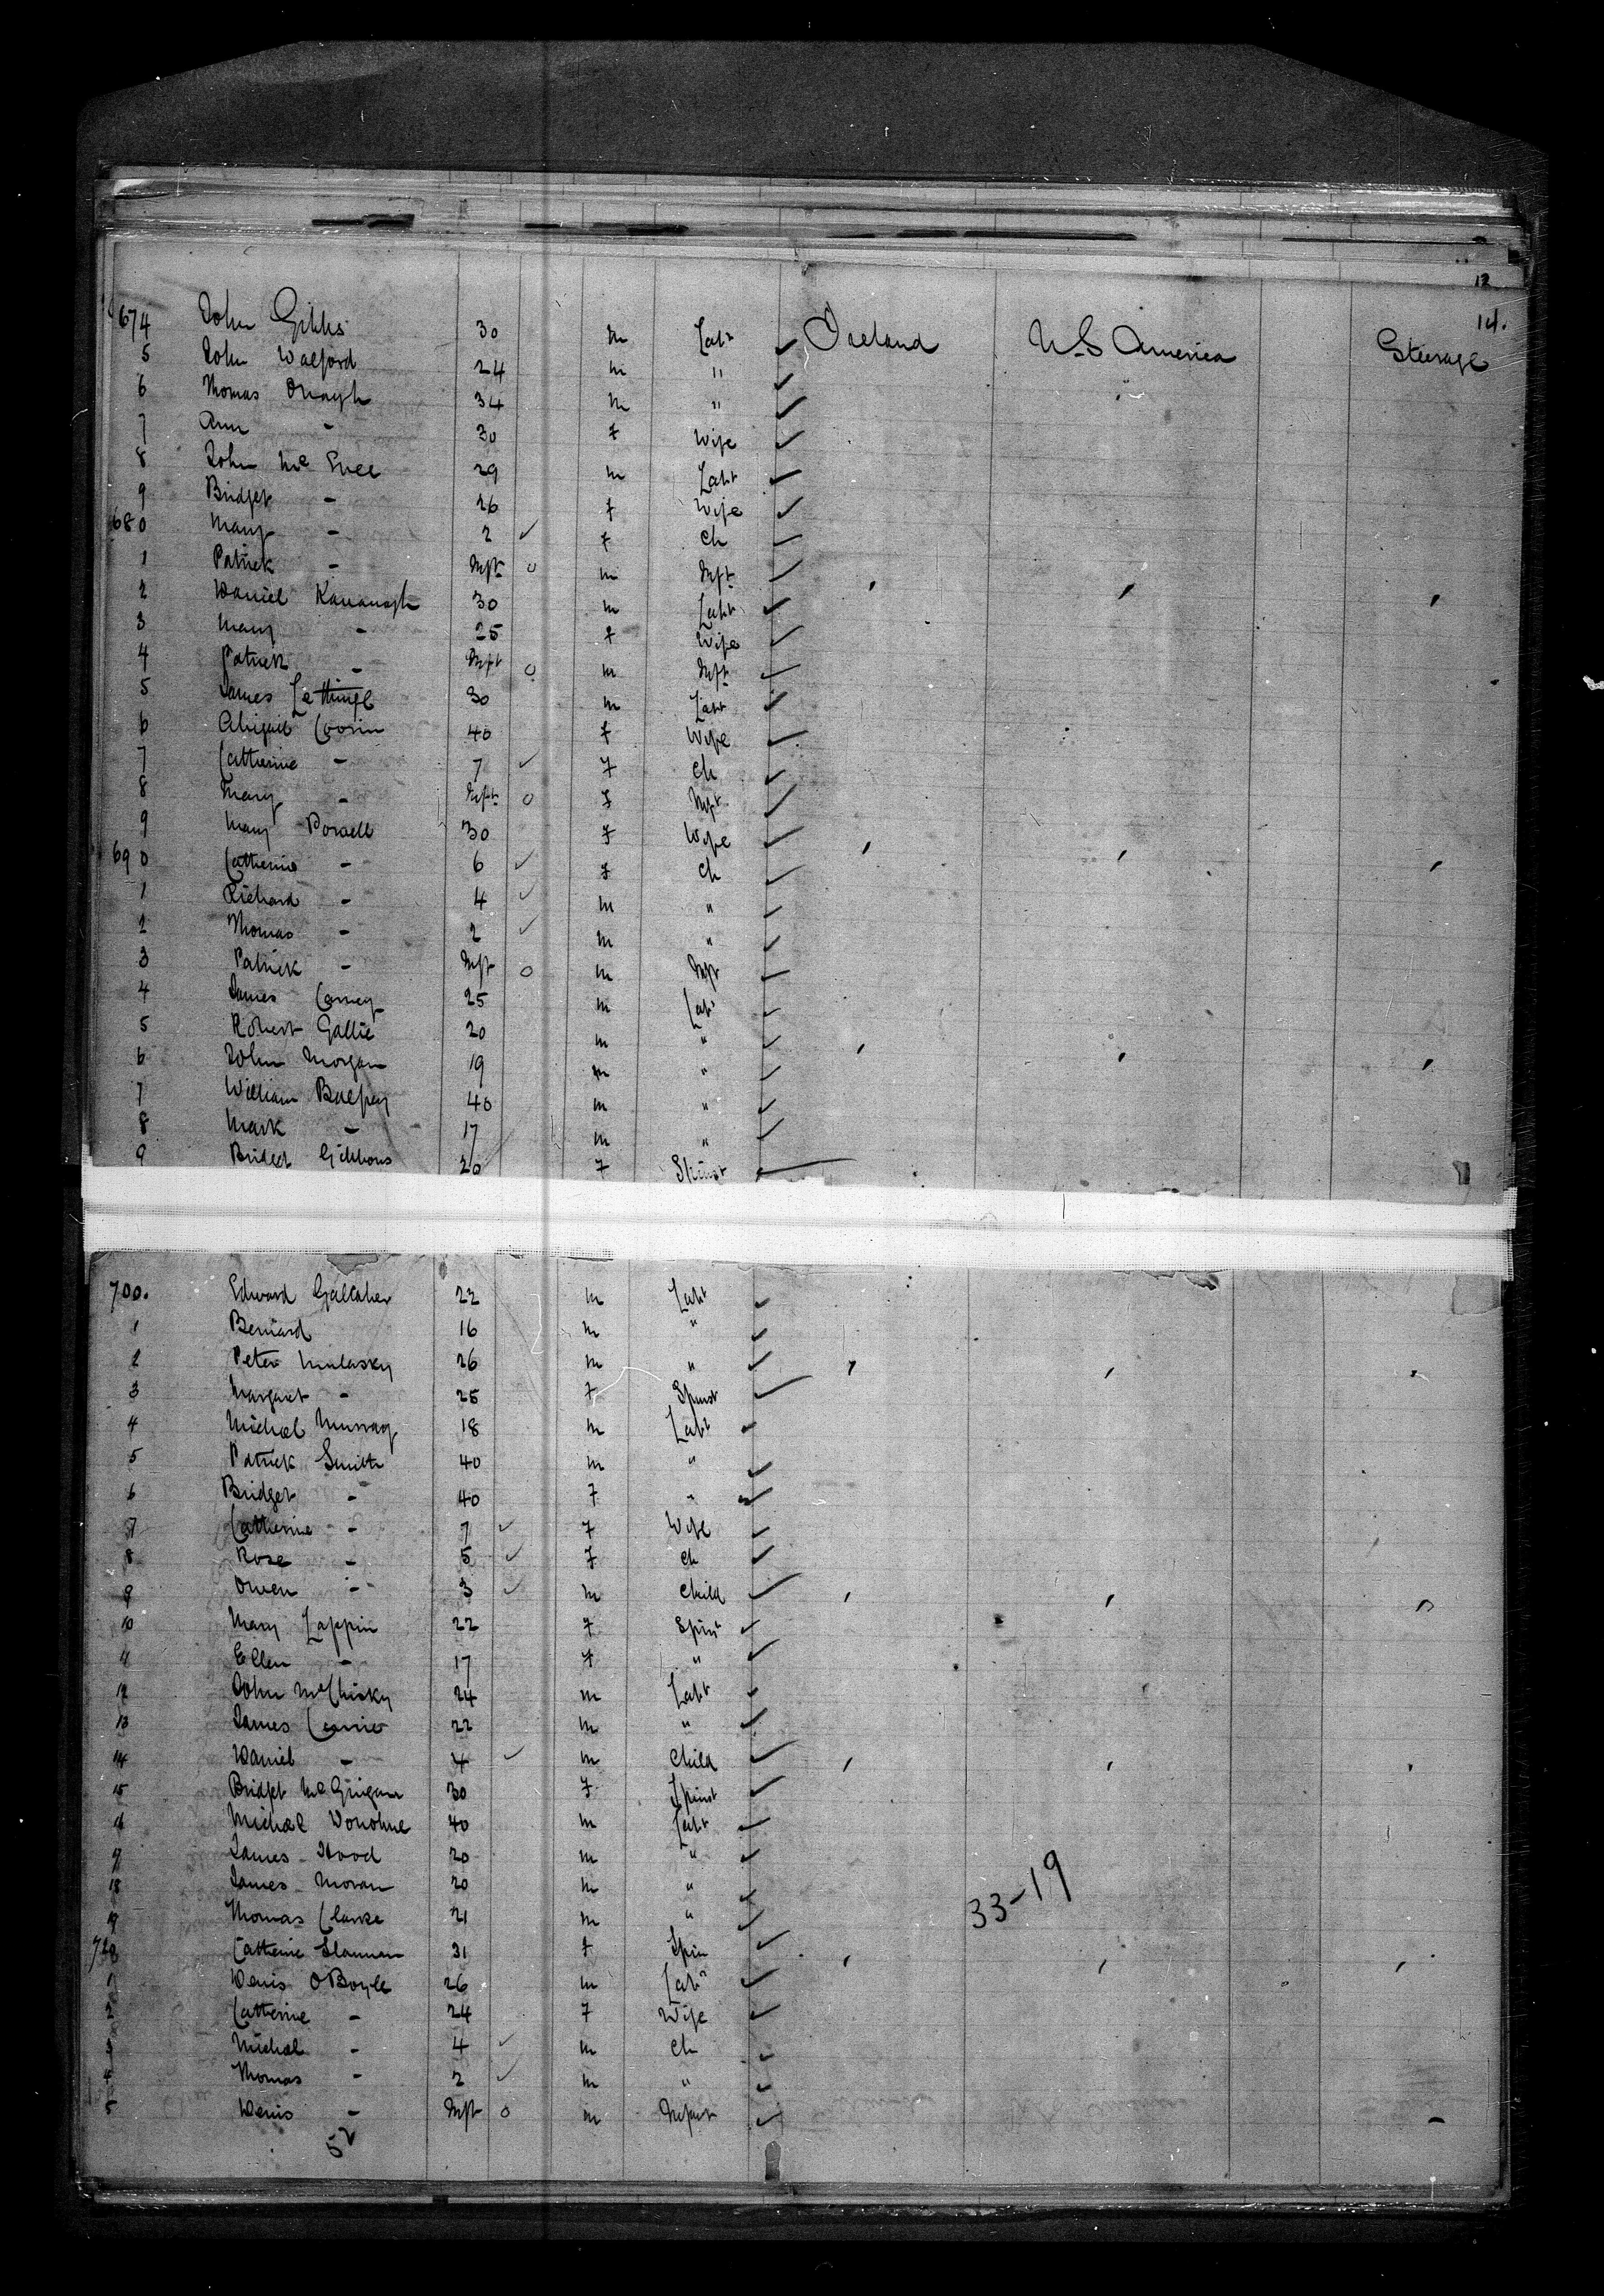 12
14.
674 John Gibbs 30 m Labr Ireland U.S America Steerage
5 John Walford 24 m "
6 Thomas 34 m "
7 Ann - 30 f Wife
8 John Mc 29 m Labr
9 Bridget - 26 f Wife
680 Mary - 2 f Ch
1 Patrick - Inft m Inft
2 Daniel Kavanagh 30 m Labr
3 Mary - 25 f Wife
4 Patrick - Inft m Inft
5 James 30 m Labr
6 Abigail 40 f Wife
7 Catherine - 7 f Ch
8 Mary - Inft f Inft
9 Mary Powell 30 f Wife
690 Catherine - 6 f Ch
1 Richard - 4 m "
2 Thomas - 2 m "
3 Patrick - Inft m Inft
4 James Carney 25 m Labr
5 Robert Gallie 20 m "
6 John Morgan 19 m "
7 William Balfey 40 m "
8 Mark - 17 m "
9 Bridget Gibbons 20 f Spinst
700. Edward Gallaher 22 m Labr
1 Bernard 16 m "
2 Peter 26 m "
3 Margaret - 25 f Spinst
4 Michael Murray 18 m Labr
5 Patrick Smith 40 m "
6 Bridget - 40 f "
7 Catherine - 7 f Wife
8 Rose - 5 f Ch
9 Owen - 3 m Child
10 Mary Lappin 22 f Spinr
11 Ellen - 17 f "
12 John 24 m Labr
13 James 22 m "
14 Daniel - 4 m Child
15 Bridget 30 f Spinst
16 Michael Donohue 40 m Labr
17 James Hood 20 m "
18 James Moran 20 m "
19 Thomas Clarke 21 m "
33-19
720 Catherine 31 f Spin
1 Denis O Boyle 26 m Labr
2 Catherine - 24 f Wife
3 Michael - 4 m Ch
4 Thomas - 2 m "
5 Denis - Inft m Infant
52